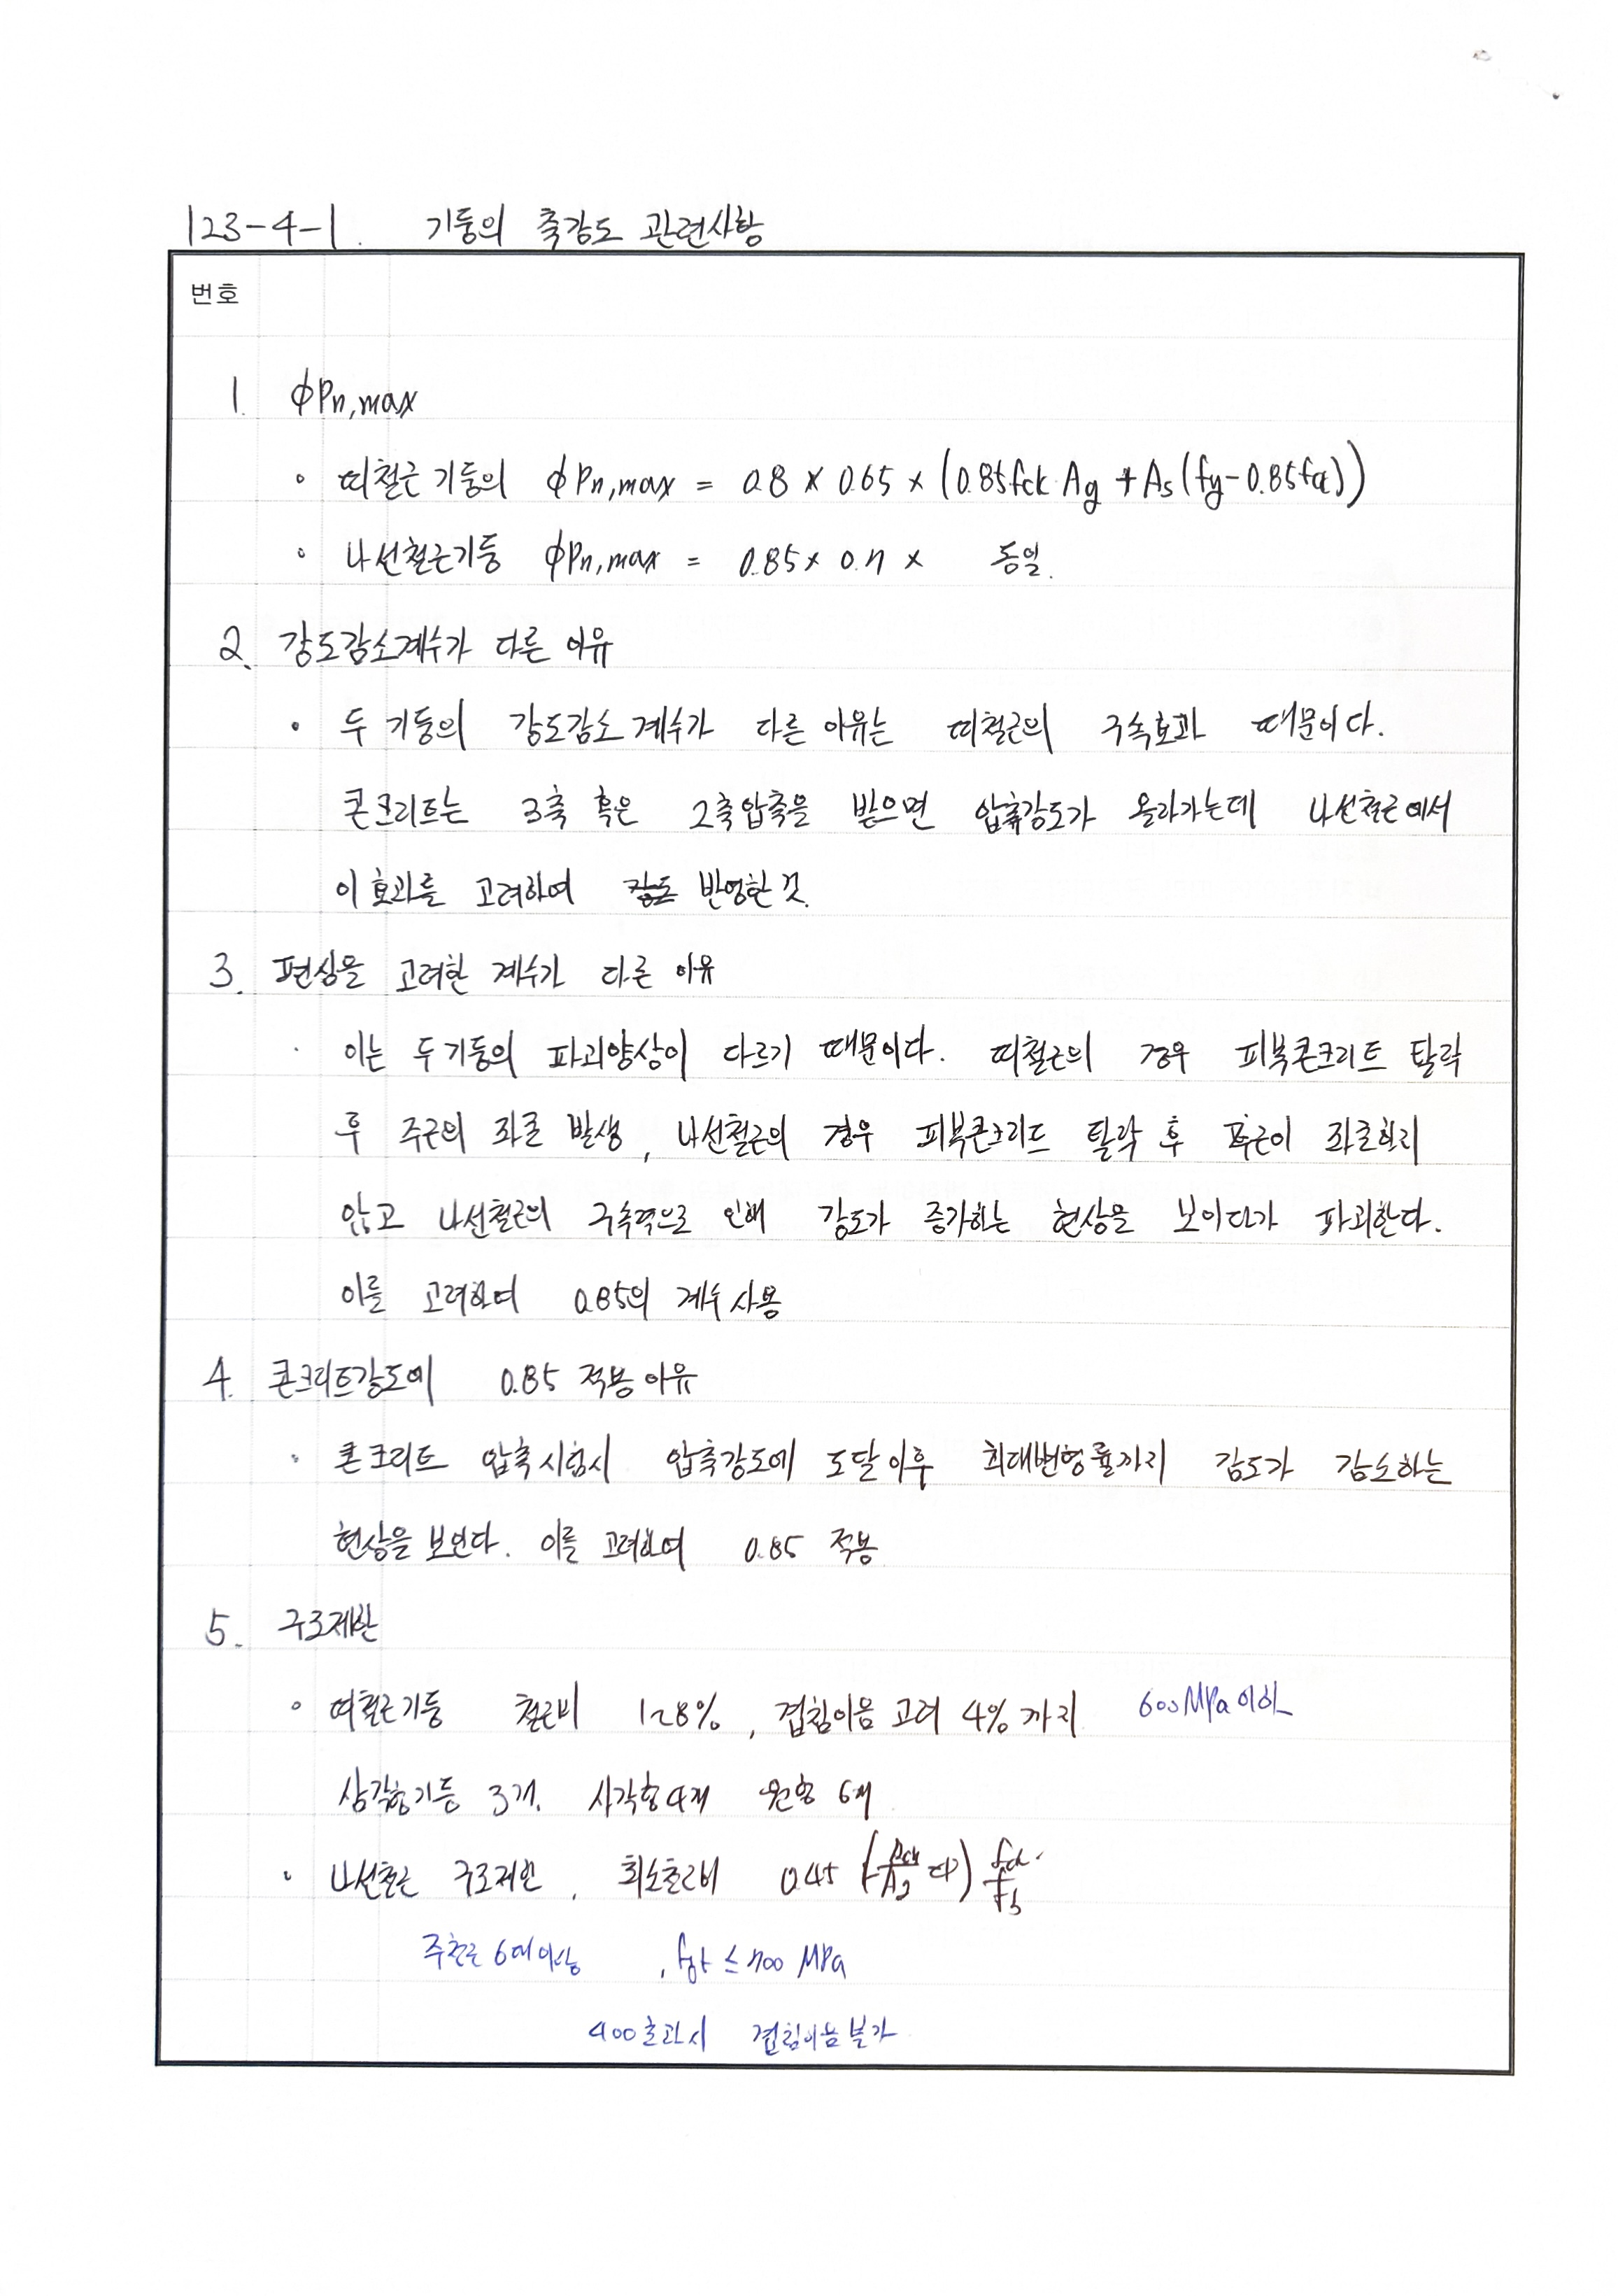 123-4-1. 기둥의 축강도 관련사항
번호
1. ϕPn,max
◦ 띠철근 기둥의 ϕPn,max = 0.8 × 0.65 × (0.85fck Ag + As(fy-0.85fck))
◦ 나선철근기둥 ϕPn,max = 0.85 × 0.7 × 동일.
2. 강도감소계수가 다른 이유
• 두 기둥의 강도감소계수가 다른 이유는 띠철근의 구속효과 때문이다.
콘크리트는 3축 혹은 2축압축을 받으면 압축강도가 올라가는데 나선철근에서
이 효과를 고려하여 반영한 것.
3. 편심을 고려한 계수가 다른 이유
· 이는 두 기둥의 파괴양상이 다르기 때문이다. 띠철근의 경우 피복콘크리트 탈락
후 주근의 좌굴 발생, 나선철근의 경우 피복콘크리트 탈락 후 주근이 좌굴하지
않고 나선철근의 구속력으로 인해 강도가 증가하는 현상을 보이다가 파괴한다.
이를 고려하여 0.85의 계수 사용
4. 콘크리트강도에 0.85 적용 이유
◦ 콘크리트 압축시험시 압축강도에 도달 이후 최대변형률까지 강도가 감소하는
현상을 보인다. 이를 고려하여 0.85 적용
5. 구조제한
◦ 띠철근기둥 철근비 1~8%, 겹침이음 고려 4% 까지 600MPa 이하
삼각형기둥 3개. 사각형 4개 원형 6개
◦ 나선철근 구조제한, 최소철근비 0.45
주철근 6개 이상, fyt ≤ 700 MPa
400초과시 겹침이음 불가